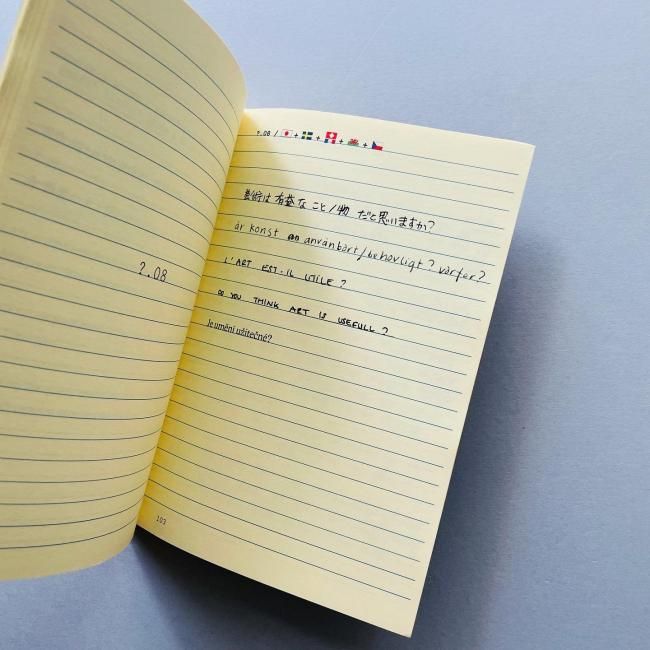 2.08
2.08 / 🇯🇵 + 🇸🇪 + 🇨🇭 + 🏴󠁧󠁢󠁷󠁬󠁳󠁿 + 🇨🇿
芸術は有益なこと/物 だと思いますか?
är konst användbart/behövligt? varför?
L'ART EST-IL UTILE ?
DO YOU THINK ART IS USEFULL ?
Je umění užitečné?
103